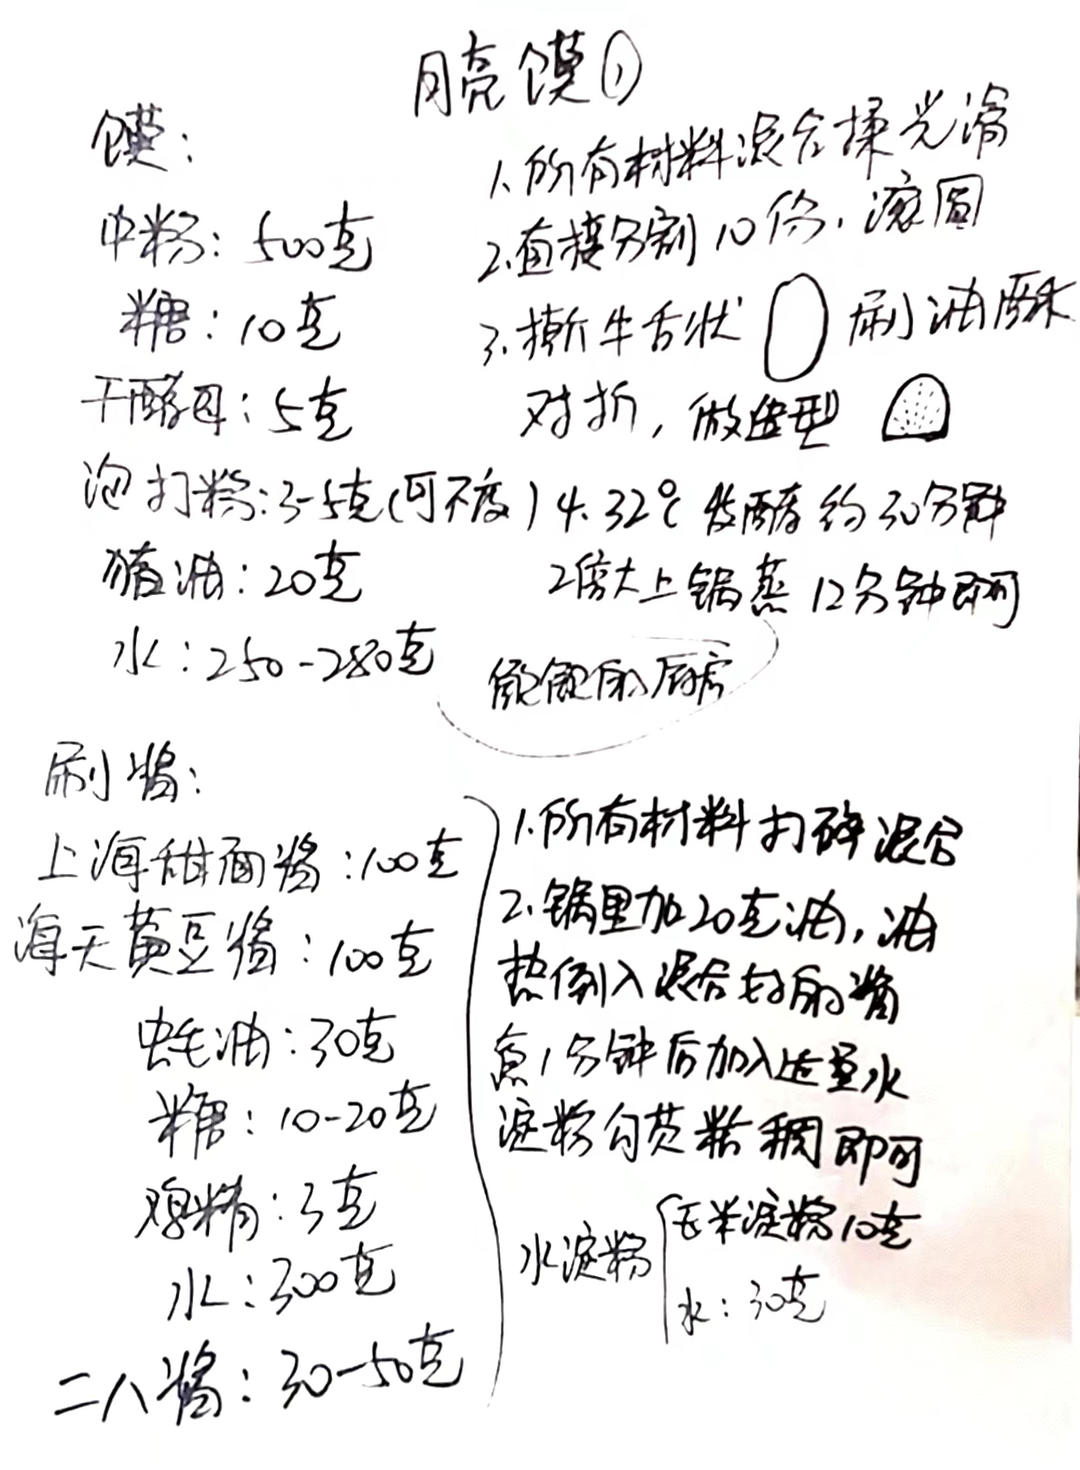 月亮馍①
馍：
中粉：500克
糖：10克
干酵母：5克
泡打粉：3-5克(可不放)
猪油：20克
水：250-280克
1.所有材料混合揉光滑
2.直接分割10份，滚圆
3.擀牛舌状 刷油酥
对折，做造型
4.32℃发酵约30分钟
2倍大上锅蒸12分钟即可
的厨房
刷酱：
上海甜面酱：100克
海天黄豆酱：100克
蚝油：30克
糖：10-20克
鸡精：3克
水：300克
二八酱：30-50克
1.所有材料打碎混合
2.锅里加20克油，油
热倒入混合好的酱
熬1分钟后加入适量水
淀粉勾芡粘稠即可
水淀粉
玉米淀粉10克
水：30克